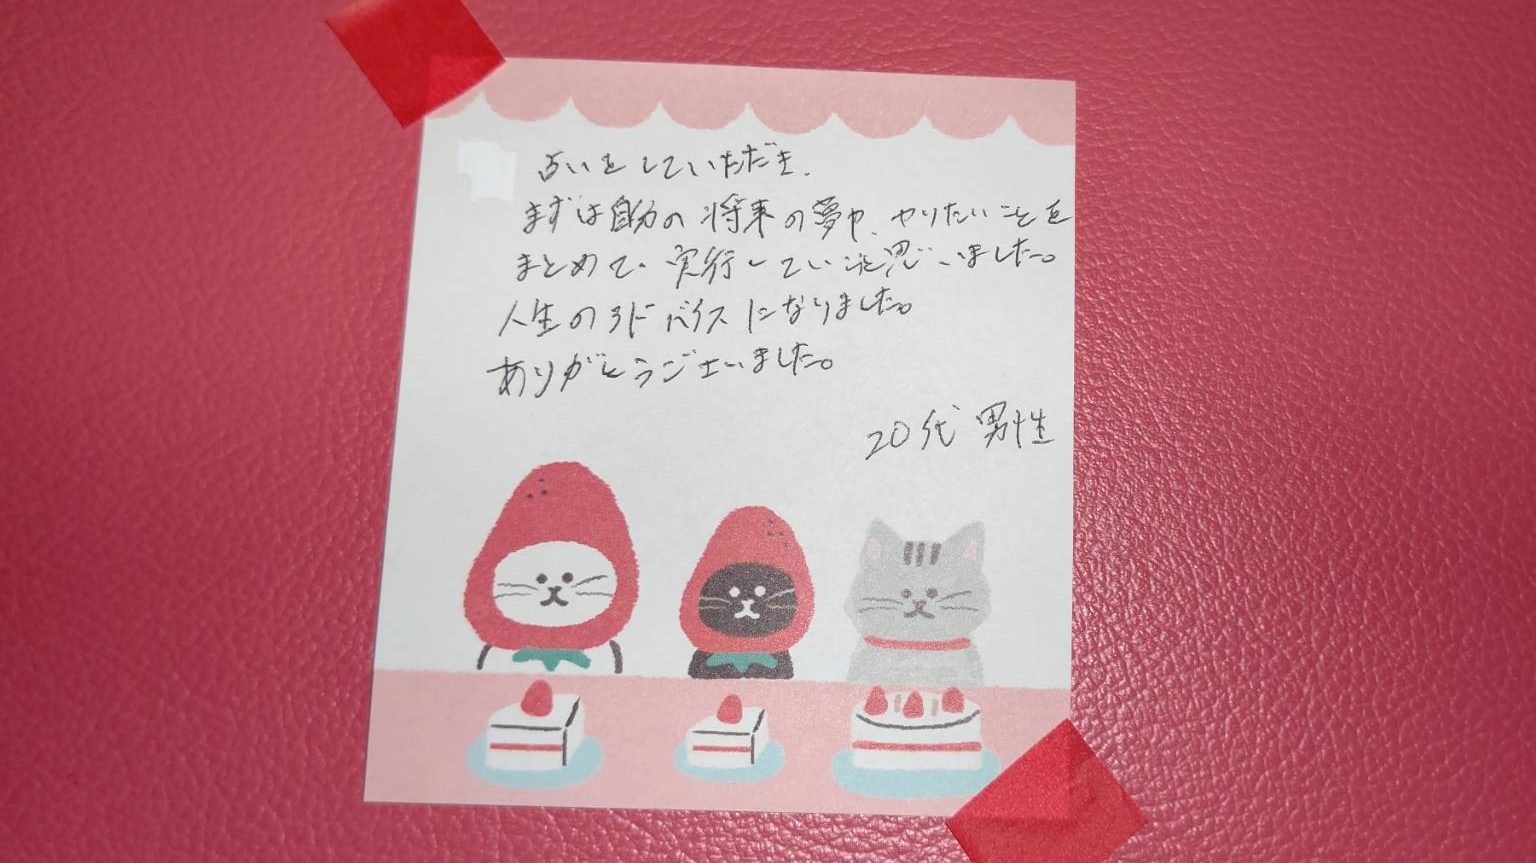 占いをしていただき、
まずは自分の将来の夢や、やりたいことを
まとめて、実行していこと思いました。
人生のアドバイスになりました。
ありがとうございました。
20代 男性